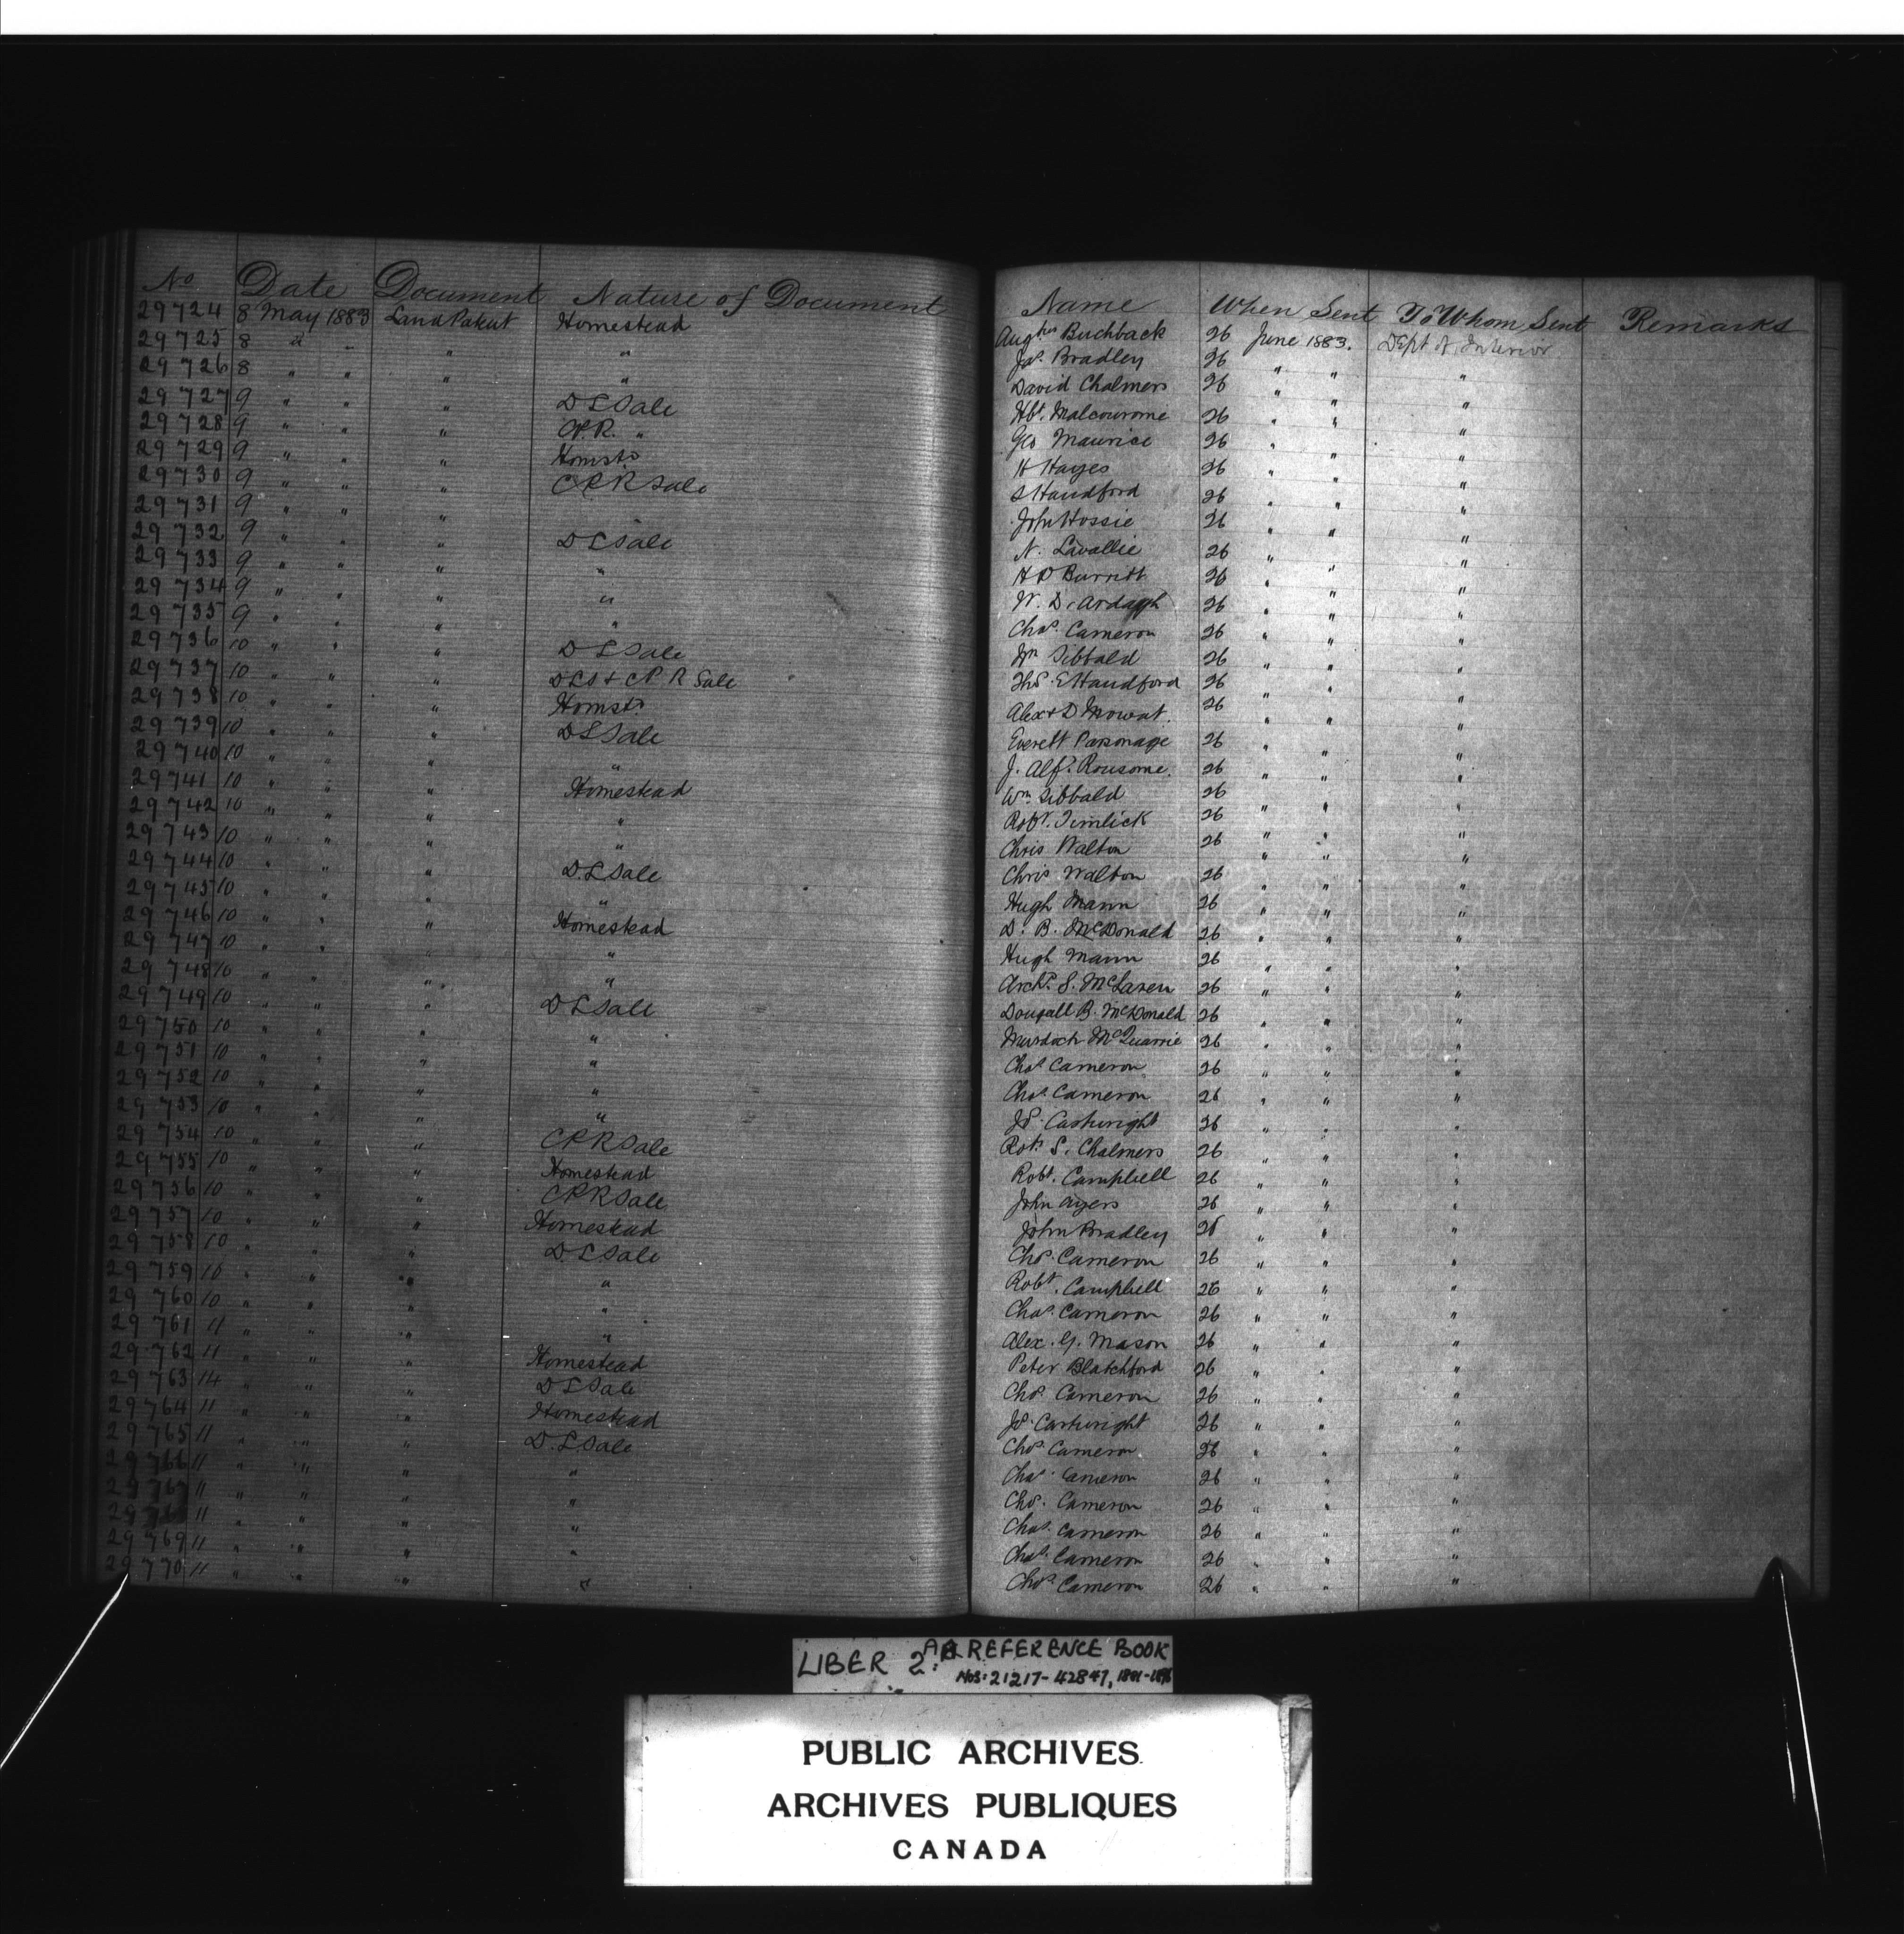 No Date Document Nature of Document Name When Sent To Whom Sent Remarks
29724 8 May 1883 Land Patent Homestead Buchback 26 June 1883. Dept of Interior
29725 8 " " " " Jas. Bradley 26 " " "
29726 8 " " " " David Chalmers 26 " " "
29727 9 " " " D L Sale Hbt. 26 " " "
29728 9 " " " C.P.R. " Geo Maurice 26 " " "
29729 9 " " " Homstd H Hayes 26 " " "
29730 9 " " " CPR Sale S Handford 26 " " "
29731 9 " " " John Hossie 26 " " "
29732 9 " " " D L Sale N. Lavallie 26 " " "
29733 9 " " " " H D Burritt 26 " " "
29734 9 " " " " W. D. Ardagh 26 " " "
29735 9 " " " " Chas. Cameron 26 " " "
29736 10 " " " D L Sale Wm Sibbald 26 " " "
29737 10 " " " D L S & C P R Sale Ths. E Handford 26 " " "
29738 10 " " " Homstd Alex & D Mowat. 26 " " "
29739 10 " " " D L Sale Everett Parsonage 26 " " "
29740 10 " " " " J. Alfd. Rousome. 26 " " "
29741 10 " " " Homestead Wm. Sibbald 26 " " "
29742 10 " " " " Robt. Timlick 26 " " "
29743 10 " " " " Chris Walton 26 " " "
29744 10 " " " D. L Sale Chris Walton 26 " " "
29745 10 " " " " Hugh Mann 26 " " "
29746 10 " " " Homestead D. B. McDonald 26 " " "
29747 10 " " " " Hugh Mann 26 " " "
29748 10 " " " " Archd. S. McLaren 26 " " "
29749 10 " " " D L Sale Dougall B. McDonald 26 " " "
29750 10 " " " " Murdoch McQuarrie 26 " " "
29751 10 " " " Chas. Cameron 26 " " "
29752 10 " " " " Chas. Cameron 26 " " "
29753 10 " " " " Js. Cartwright 26 " " "
29754 10 " " " CPR Sale Robt. S. Chalmers 26 " " "
29755 10 " " " Homestead Robt. Campbell 26 " " "
29756 10 " " " CPR Sale John Ayers 26 " " "
29757 10 " " " Homestead John Bradley 26 " " "
29758 10 " " " D. L Sale Chas. Cameron 26 " " "
29759 10 " " " " Robt. Campbell 26 " " "
29760 10 " " " " Chas. Cameron 26 " " "
29761 11 " " " " Alex. G. Mason 26 " " "
29762 11 " " " Homestead Peter Blatchford 26 " " "
29763 14 " " " D L Sale Chas. Cameron 26 " " "
29764 11 " " " Homestead Js. Cartwright 26 " " "
29765 11 " " " D. L Sale Chas. Cameron 26 " " "
29766 11 " " " " Chas. Cameron 26 " " "
29767 11 " " " " Chas. Cameron 26 " " "
11 " " " " Chas. Cameron 26 " " "
29769 11 " " " " Chas. Cameron 26 " " "
29770 11 " " " " Chas. Cameron 26 " " "
LIBER 2: REFERENCE BOOK
Nos: 21217-42847,
PUBLIC ARCHIVES
ARCHIVES PUBLIQUES
CANADA